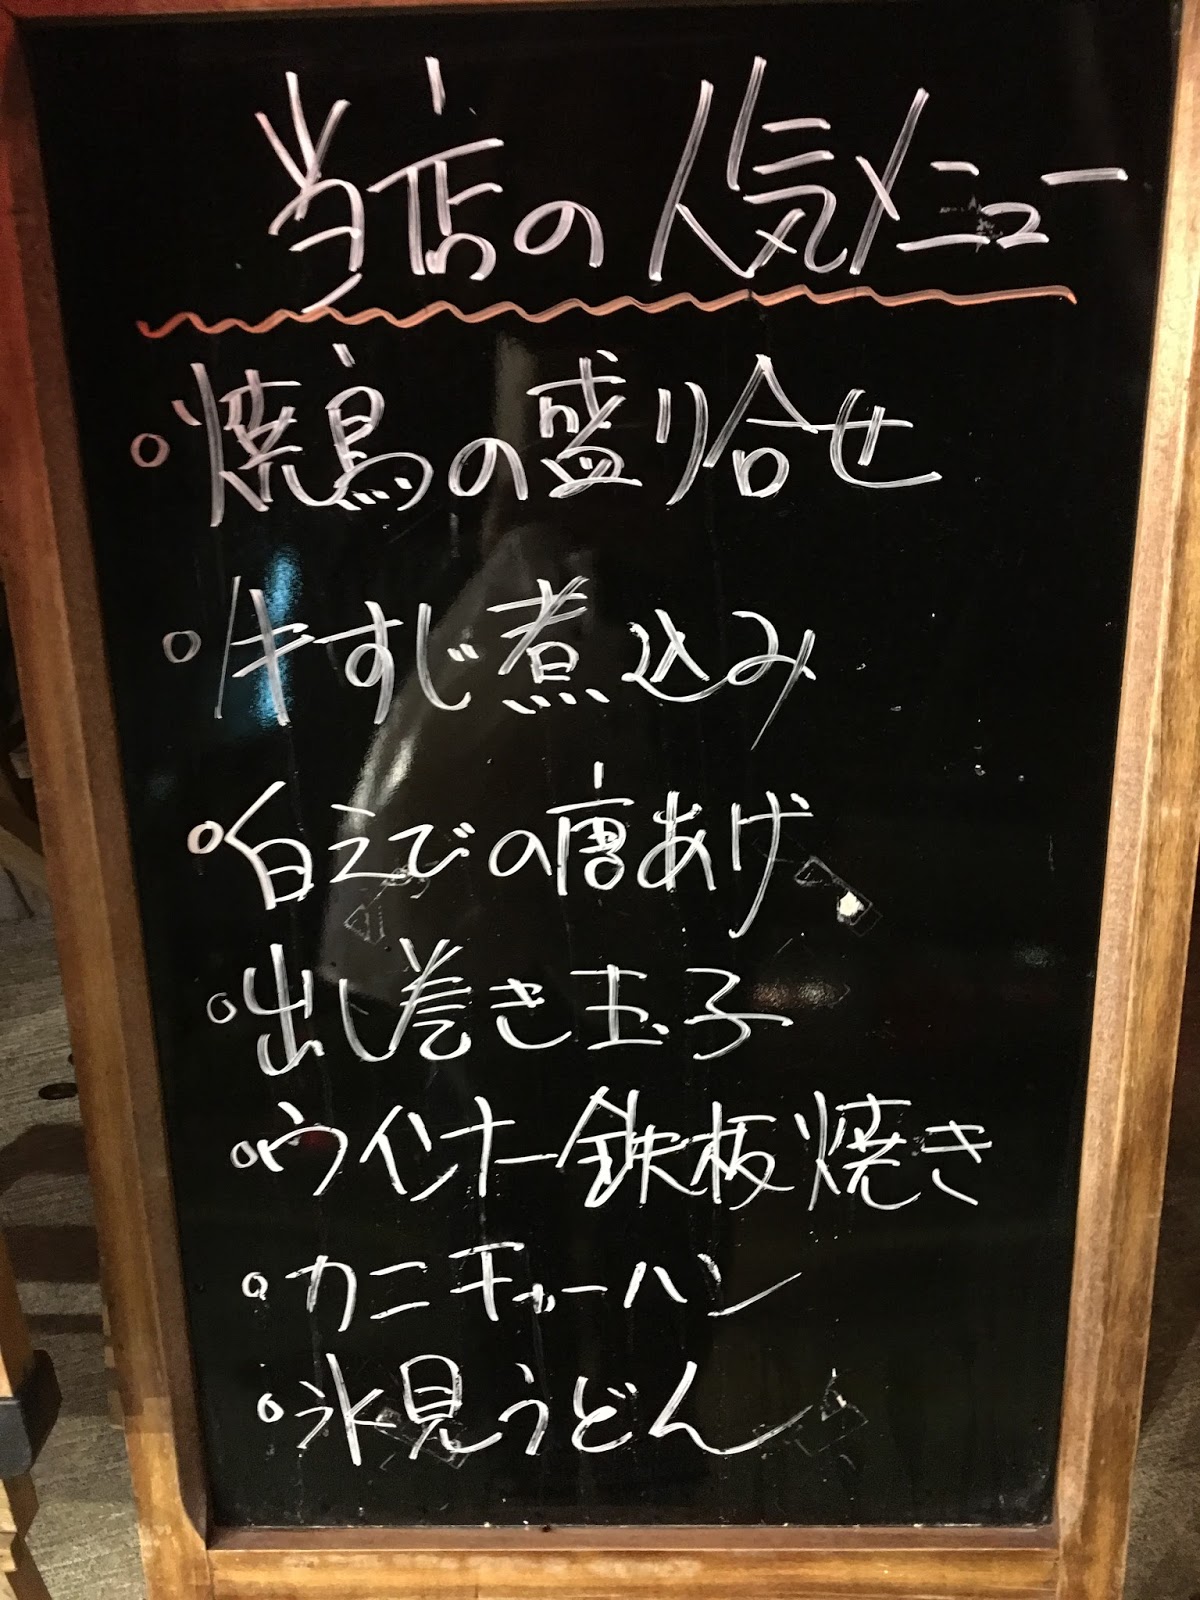 当店の人気メニュー
○焼鳥の盛り合せ
○牛すじ煮込み
○白えびの唐あげ
○出し巻き玉子
○ウインナー鉄板焼き
○カニチャーハン
○氷見うどん